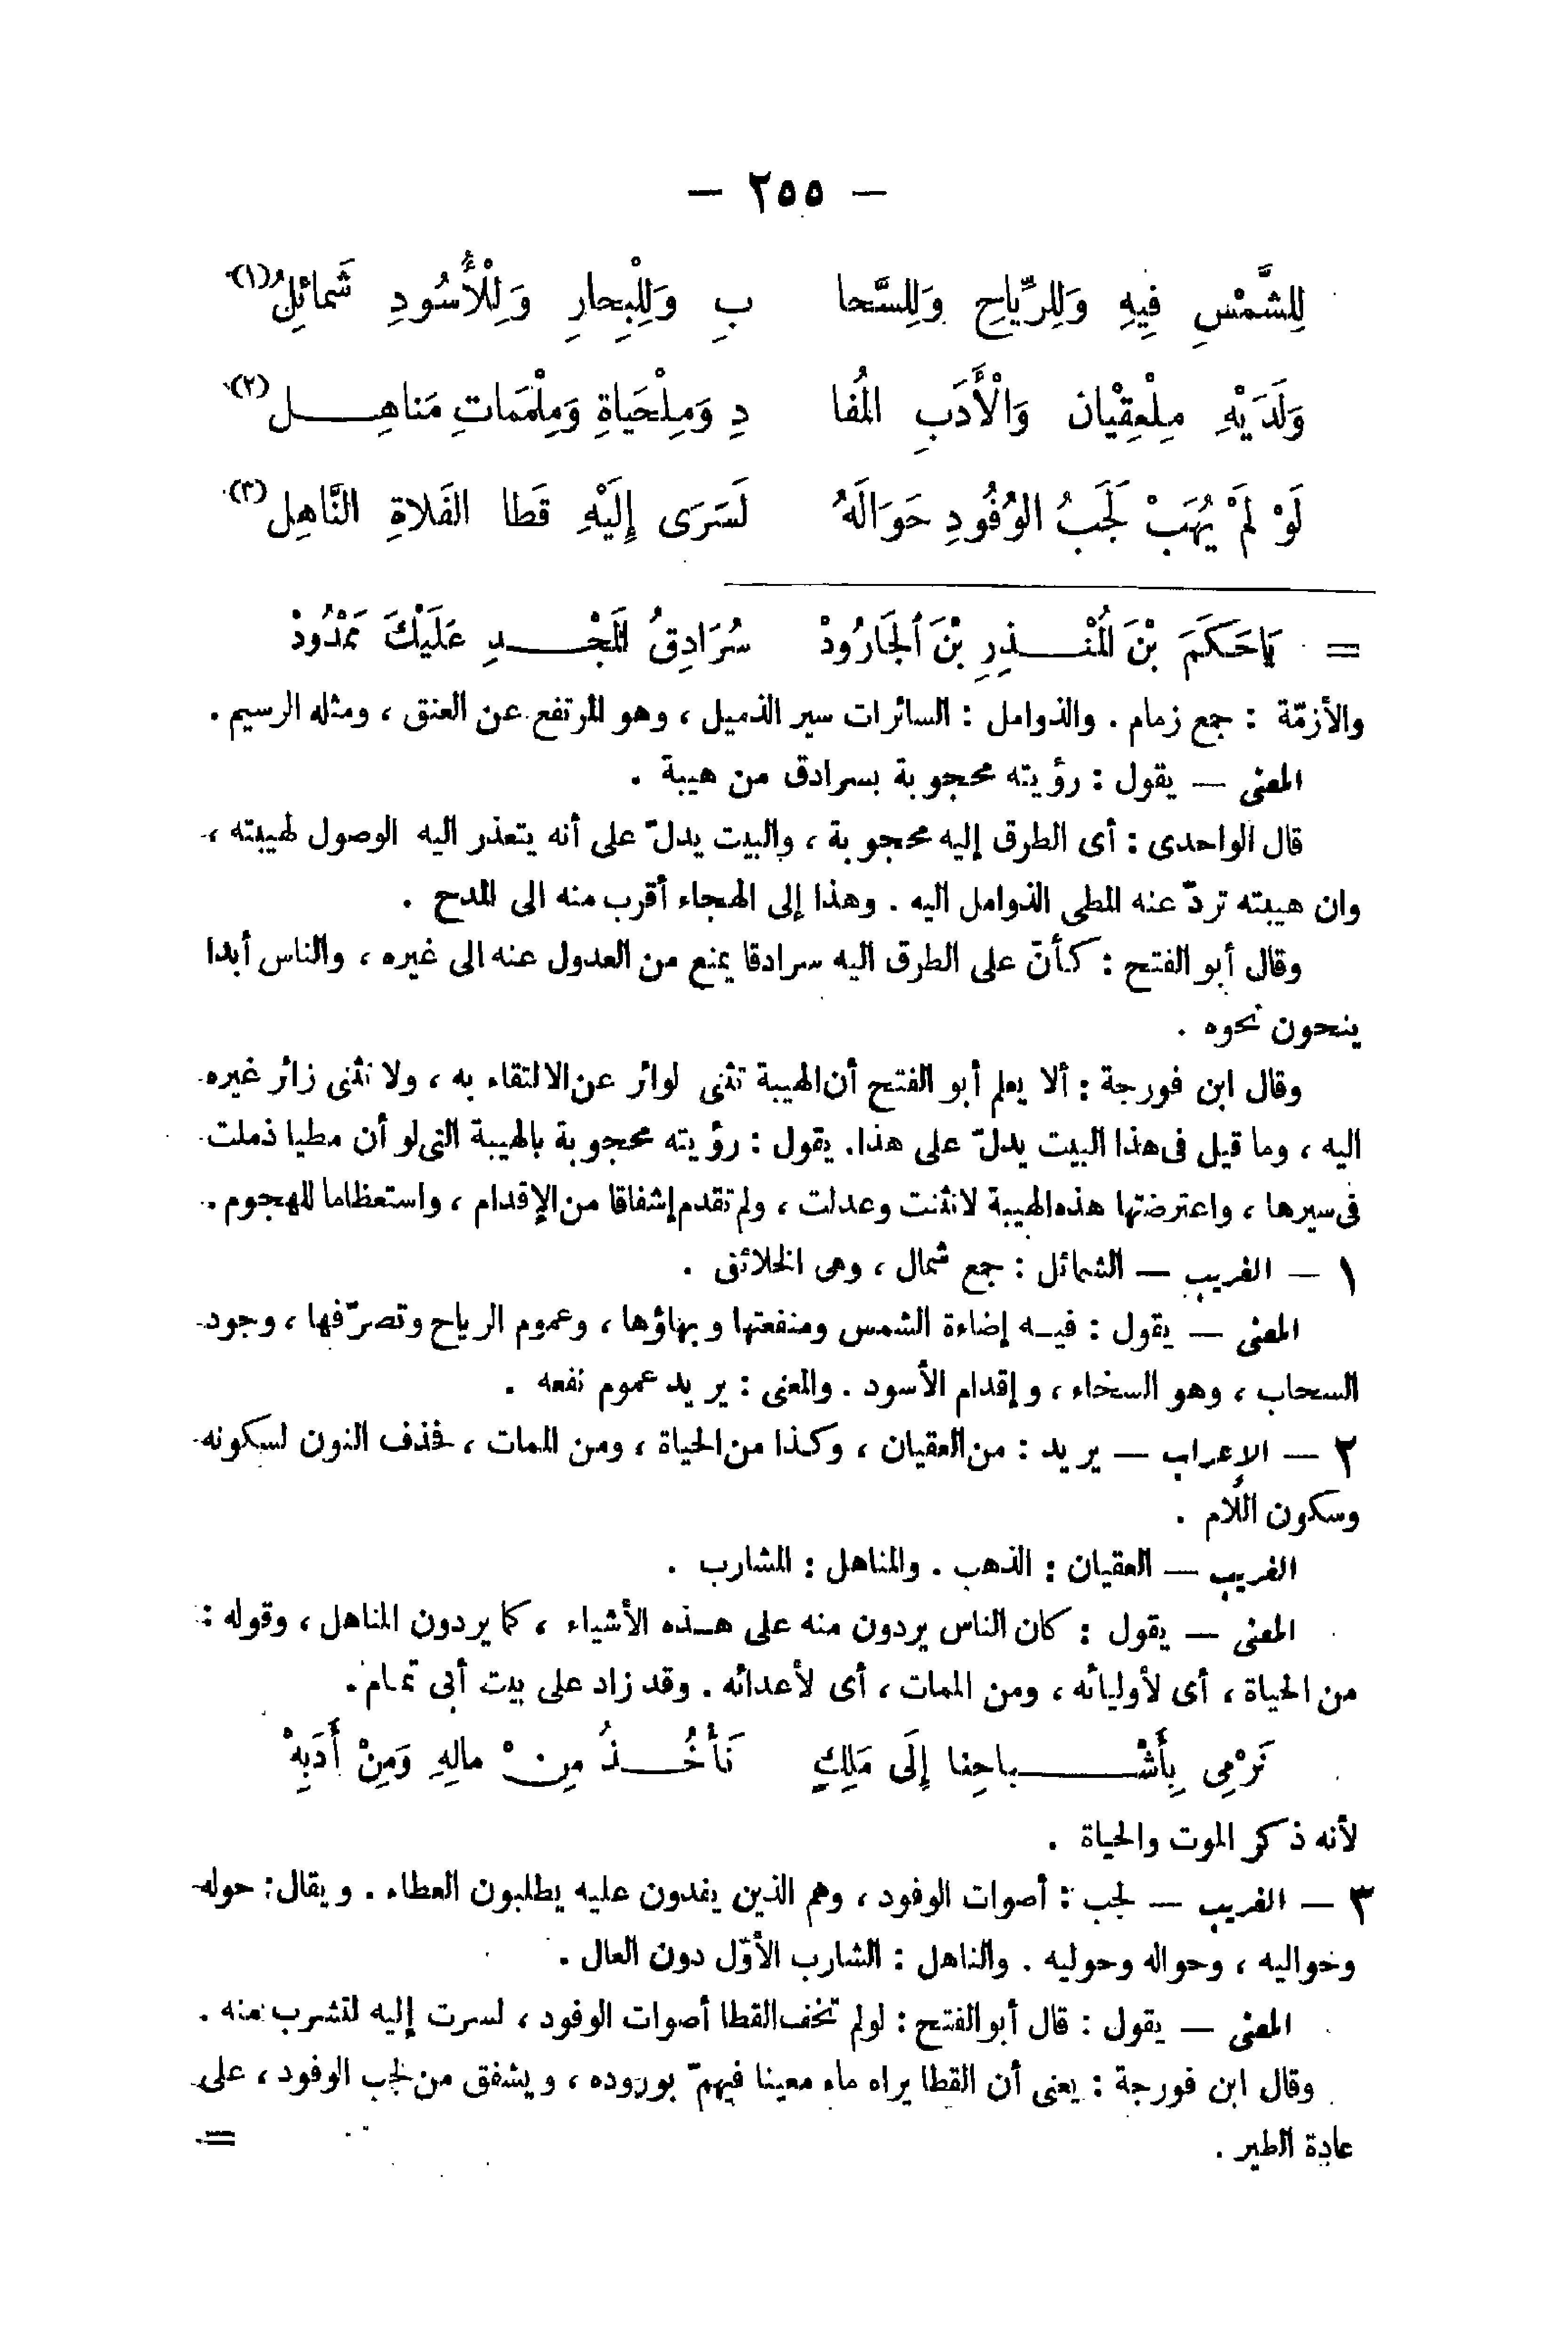 — ٢٥٥ —
لِلشَّمْسِ فِيهِ وَلِلرِّيَاحِ وَلِلسَّحا بِ وَلِلْبِحارِ وَلِلْأُسُودِ شَمائِلُ (١)
وَلَدَيْهِ مِلْعِقْيَان وَالْأَدَبِ المُفا دِ وَمِلْحَيَاةِ وَمِلْمَمَاتِ مَناهِــــل (٢)
لَوْ لَمْ يُهَبْ لَجَبُ الوُفُودِ حَوَالَهُ لَسَرَى إِلَيْهِ قَطا الفَلاةِ النَّاهِل (٣)
= يَاحَكَمَ بْنَ المُنْـــذِرِ بْنَ الْجَارُودْ سُرَادِقُ المَجْـــدِ عَلَيْكَ مَمْدُودْ
والأزمّة : جمع زمام . والذوامل : السائرات سير الذميل ، وهو المرتفع عن العنق ، ومثله الرسيم .
المعنى — يقول : رؤيته محجوبة بسرادق من هيبة .
قال الواحدى : أى الطرق إليه محجوبة ، والبيت يدلّ على أنه يتعذر اليه الوصول لهيبته ،
وان هيبته تردّ عنه المطى الذوامل اليه . وهذا إلى الهجاء أقرب منه الى المدح .
وقال أبو الفتح : كأنّ على الطرق اليه سرادقا يمنع من العدول عنه الى غيره ، والناس أبدا
ينحون نحوه .
وقال ابن فورجة : ألا يعلم أبو الفتح أن الهيبة تثنى لوائر عن الالتقاء به ، ولا تثنى زائر غيره
اليه ، وما قيل فى هذا البيت يدلّ على هذا. يقول : رؤيته محجوبة بالهيبة التى لو أن مطيا ذملت
فى سيرها ، واعترضتها هذه الهيبة لانثنت وعدلت ، ولم تقدم إشفاقا من الإقدام ، واستعظاما للهجوم .
١ — الغريب — الشمائل : جمع شمال ، وهى الخلائق .
المعنى — يقول : فيـه إضاءة الشمس ومنفعتها وبهاؤها ، وعموم الرياح وتصرّفها ، وجود
السحاب ، وهو السخاء ، وإقدام الأسود . والمعنى : يريد عموم نفعه .
٢ — الإعراب — يريد : من العقيان ، وكذا من الحياة ، ومن الممات ، فحذف النون لسكونه
وسكون اللام .
الغريب — العقيان : الذهب . والمناهل : المشارب .
المعنى — يقول : كان الناس يردون منه على هـذه الأشياء ، كما يردون المناهل ، وقوله :
من الحياة ، أى لأوليائه ، ومن الممات ، أى لأعدائه . وقد زاد على بيت أبى تمام .
نَرْمِى بِأَشْــــباحِنا إِلَى مَلِكٍ نَأْخُـــذُ مِنْ مالِهِ وَمِنْ أَدَبِهْ
لأنه ذكر الموت والحياة .
٣ — الغريب — لجب : أصوات الوفود ، وهم الذين يفدون عليه يطلبون العطاء . ويقال : حوله
وحواليه ، وحواله وحوليه . والناهل : الشارب الأوّل دون العال .
المعنى — يقول : قال أبو الفتح : لو لم تخف القطا أصوات الوفود ، لسرت إليه لتشرب منه .
وقال ابن فورجة : يعنى أن القطا يراه ماء معينا فيهمّ بوروده ، ويشفق من لجب الوفود ، على
عادة الطير . =